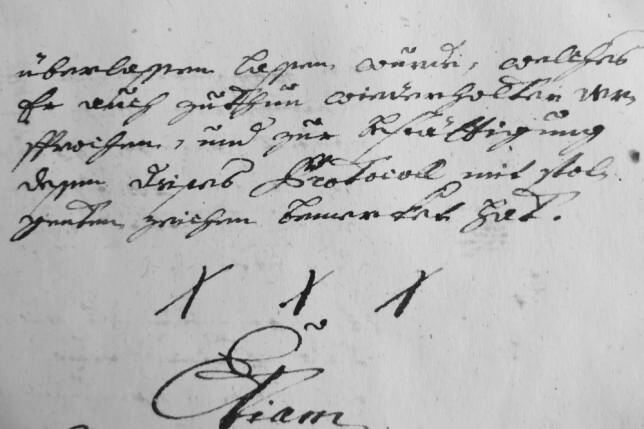 überlassen lassen würde, welches
Er auch zu thun wiederholter ver
sprochen, und zur Bestättigung
dessen dieses Protocoll mit fol
genten zeichen bemerket hat.
X X X
Etiam